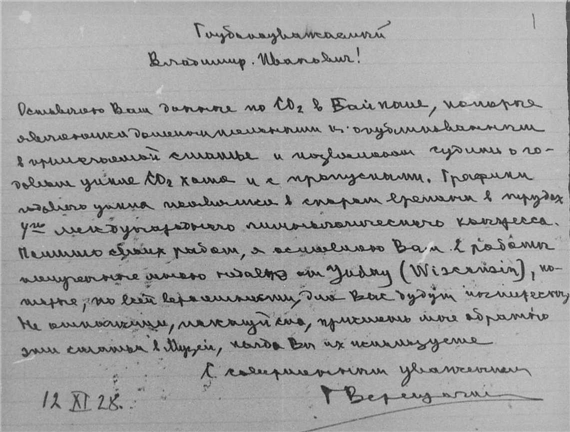 1
Глубокоуважаемый
Владимир Иванович!
Оставляю Вам данные по CO2 в Байкале, которые
являются дополнительными к опубликованным
в прилагаемой статье и позволяют судить о го-
довом цикле CO2 хотя и с пропусками. Графики
годового цикла появятся в скором времени в трудах
4го международного лимнологического конгресса.
Помимо своих работ, я оставляю Вам 2 работы
полученные мною недавно от Juday (Wisconsin), ко-
торые, по всей вероятности, для Вас будут интересны,
Не откажите, пожалуйста, прислать мне обратно
эти статьи в Музей, когда Вы их используете
С совершенным уважением
12 XI 28. Г Верещагин